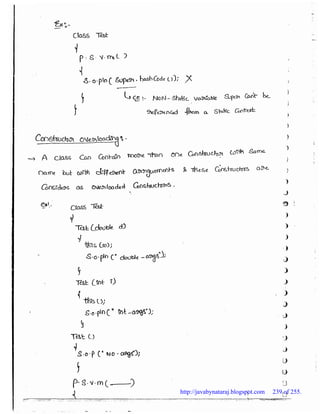 Ex:-
class Test
{
p. s. v. m( )
{
S.o.pln( super. hashCode ()); X
} CE :- Non-static variable super can't be
} referenced from a static context
Constructor overloading :-
→ A class can contain more than one constructor with same
name but with different arguements & these constructors are
considers as overloaded constructors.
Ex:- class Test
{
Test (double d)
{
this (10);
S.o.pln (" double -args");
}
Test (int i)
{
this ();
S.o.pln (" int -args");
}
Test ( )
{
S.o.p (" No - args");
}
p. s. v. m ( )
{
http://javabynataraj.blogspot.com 239 of 255.